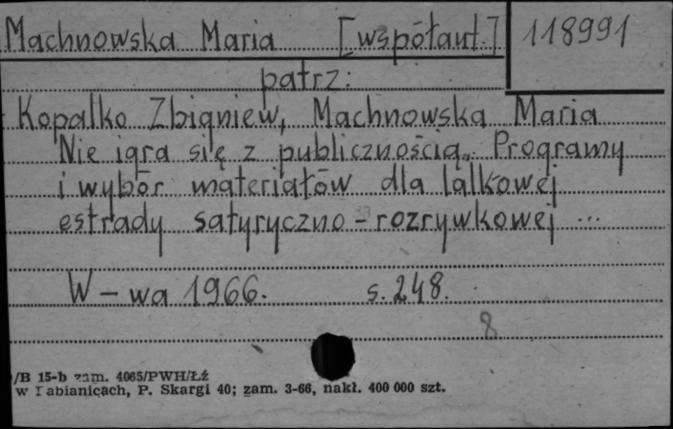 Machnowska Maria [współaut.] 118991
patrz:
Kopalko Zbigniew, Machnowska Maria
Nie igra się z publicznością. Programy
i wybór materiałów dla lalkowej
estrady satyryczno-rozrywkowej ...
W-wa 1966. s. 248.
8
/B 15-b zam. 4065/PWH/Łź
w Pabianicach, P. Skargi 40; zam. 3-66, nakł. 400 000 szt.